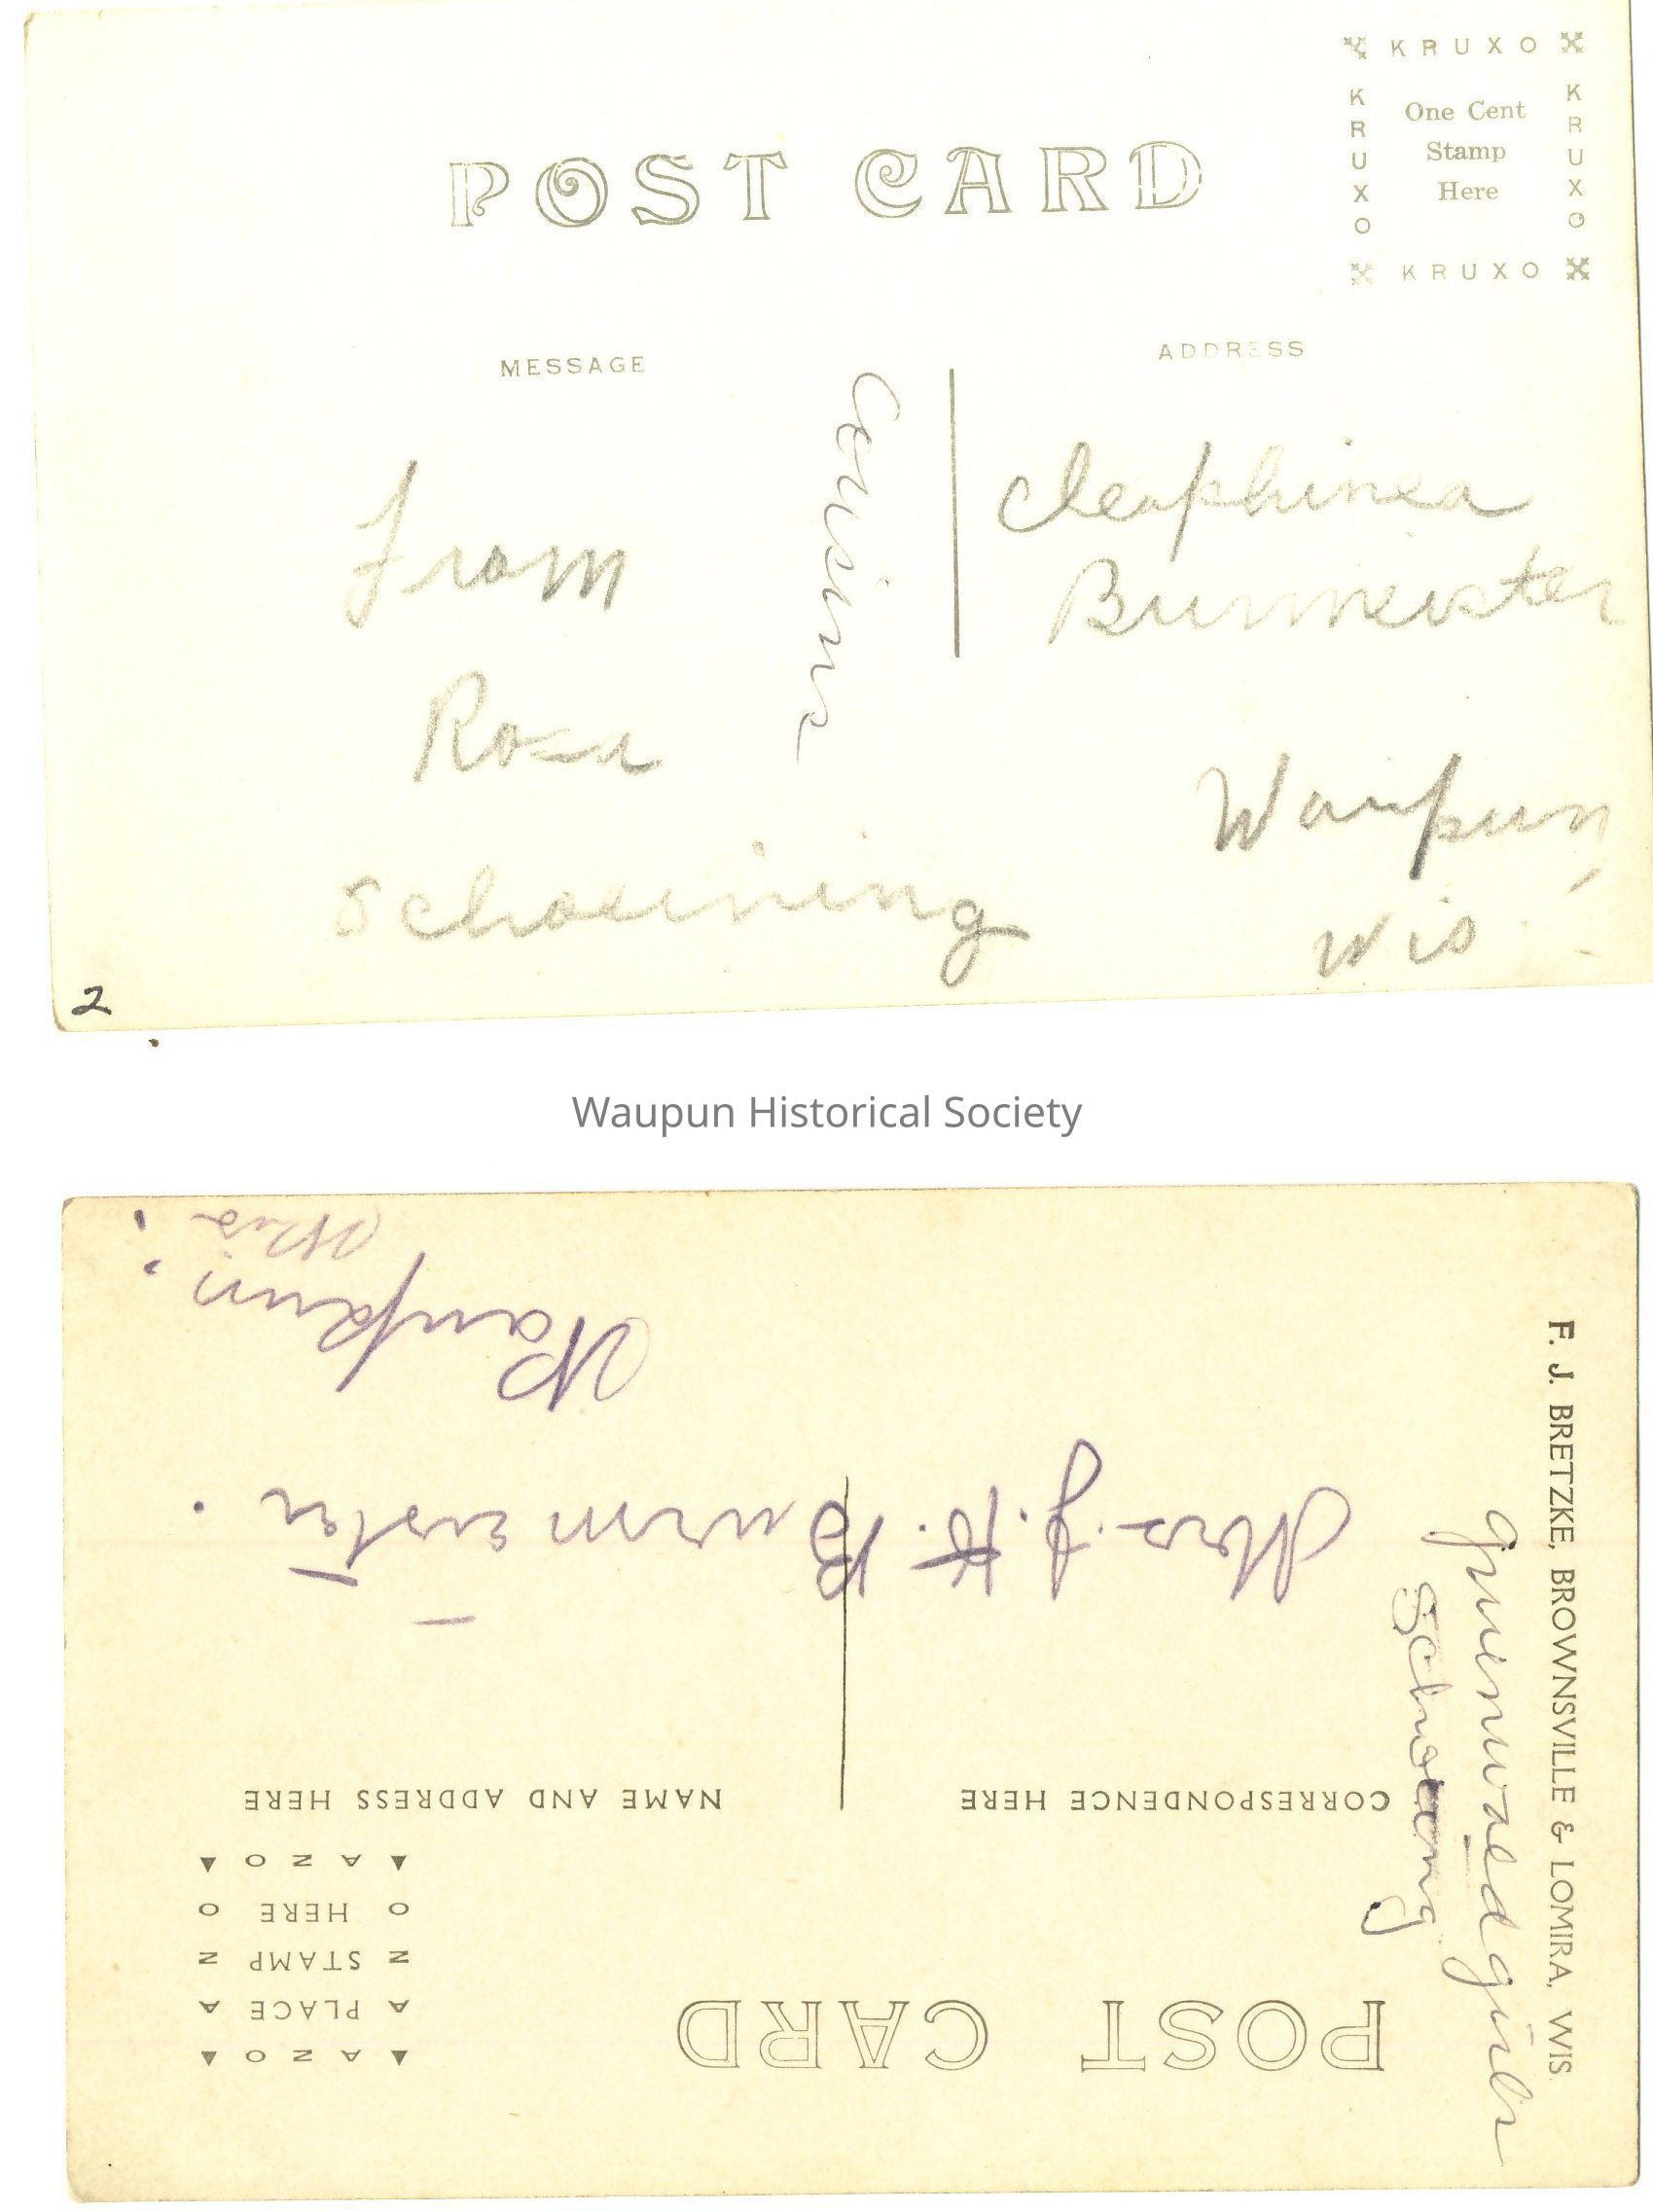 POST CARD
KRUXO
KRUXO
One Cent
Stamp
Here
KRUXO
KRUXO
MESSAGE
ADDRESS
From
Rosa
Schoeining
cousins
Cleaphinea
Burmeister
Waupun,
Wis
2
Waupun Historical Society
POST CARD
AZO
PLACE
STAMP
HERE
AZO
CORRESPONDENCE HERE
NAME AND ADDRESS HERE
Mrs. J. H. Burmeister.
Waupun.
Wis.
F. J. BRETZKE, BROWNSVILLE & LOMIRA, WIS.
girls